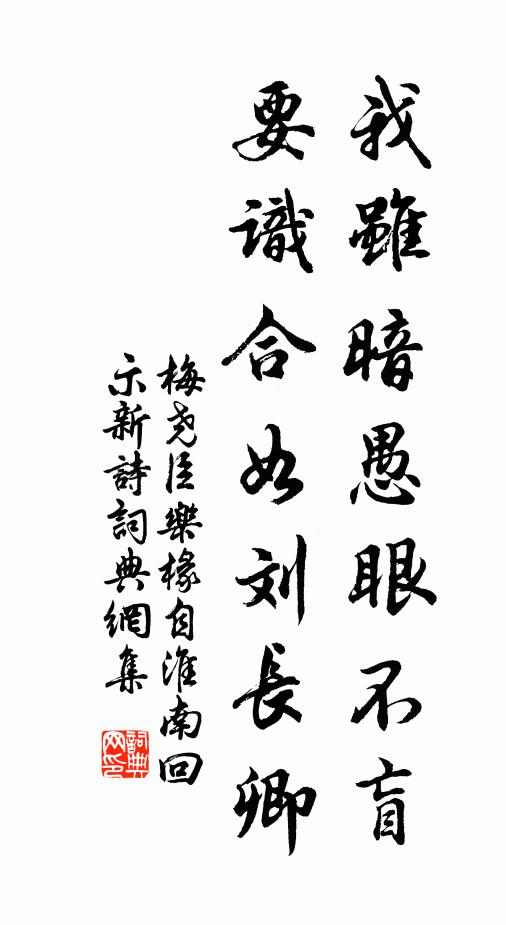 我雖暗愚眼不盲
要識合如刘長卿
梅尧臣樂椽自淮南回
示新詩詞典網集
詞典網印